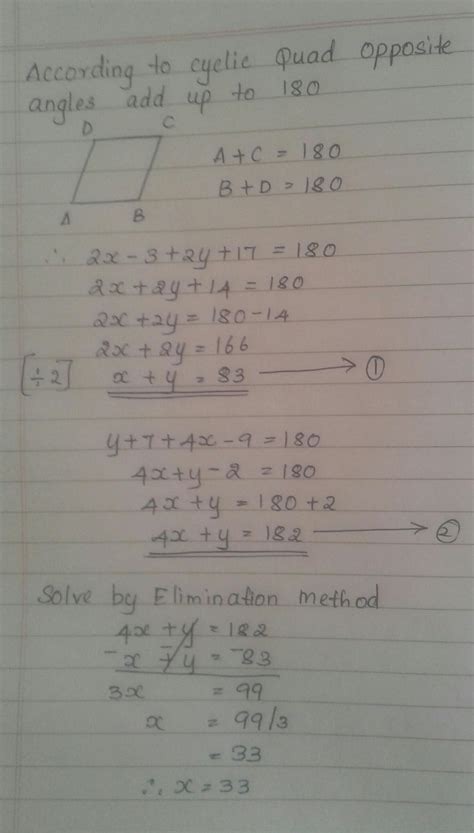 According to cyclic Quad opposite
angles add up to 180
D C
A + C = 180
B + D = 180
A B
∴ 2x - 3 + 2y + 17 = 180
2x + 2y + 14 = 180
2x + 2y = 180 - 14
2x + 2y = 166
[÷2] x + y = 83 → ①
y + 7 + 4x - 9 = 180
4x + y - 2 = 180
4x + y = 180 + 2
4x + y = 182 → ②
Solve by Elimination method
4x + y = 182
- x + y = - 83
3x = 99
x = 99/3
= 33
∴ x = 33